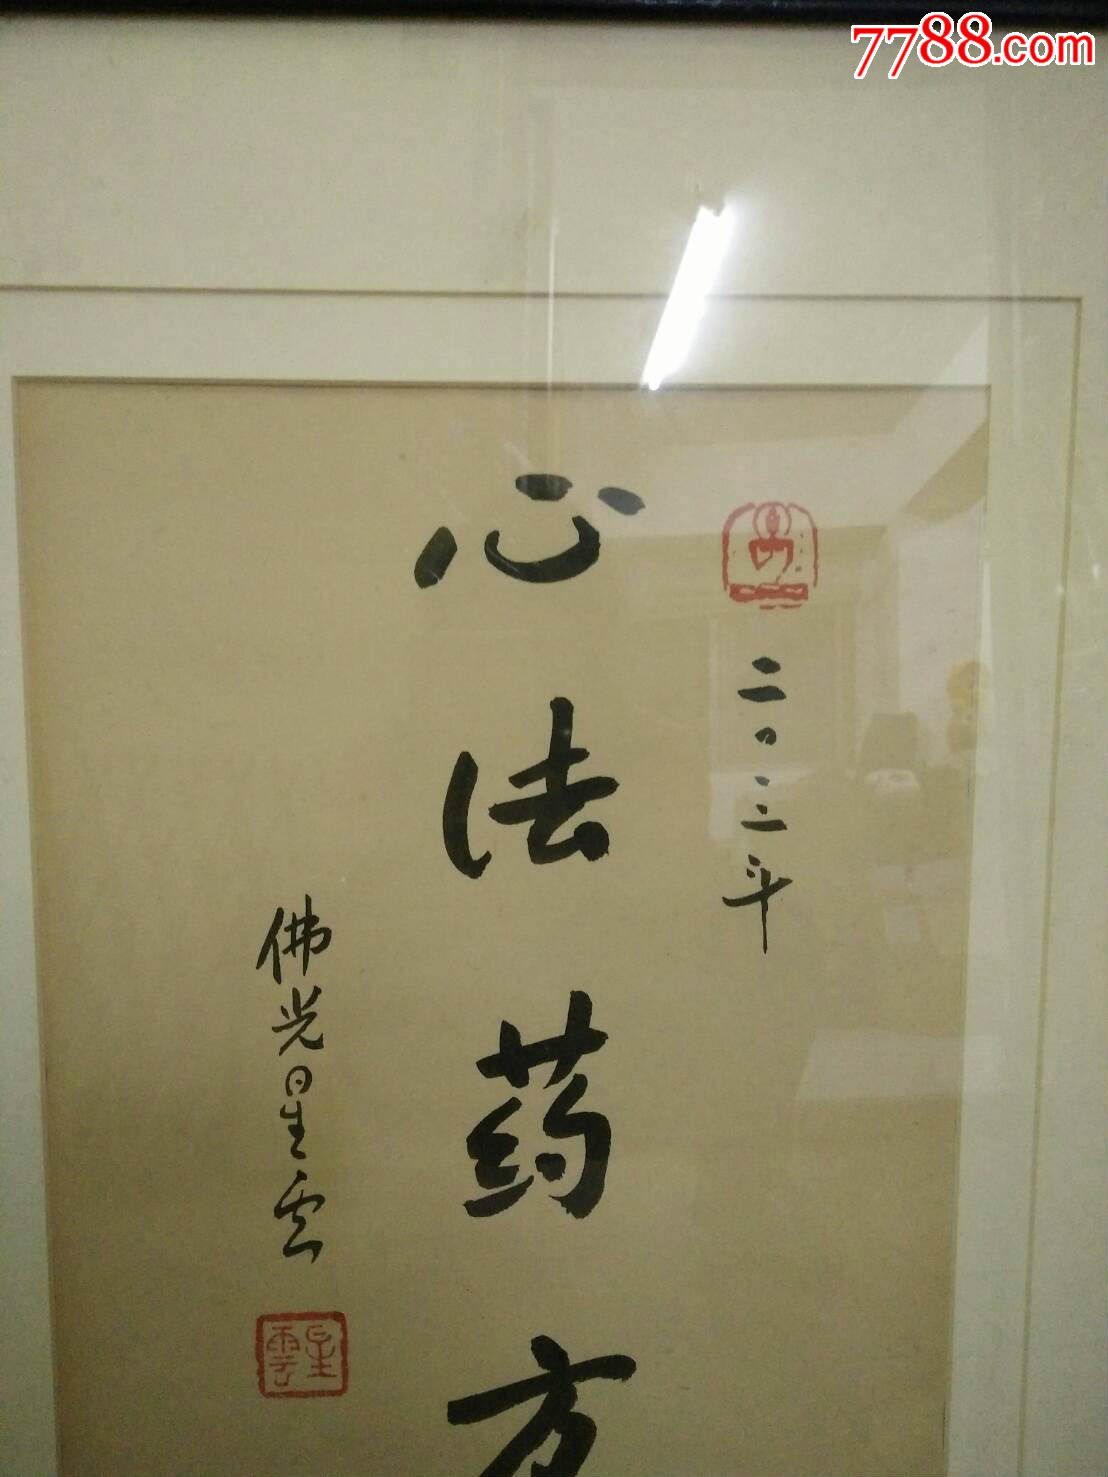 7788.com
二〇一二年
心法药方
佛光星云
星雲